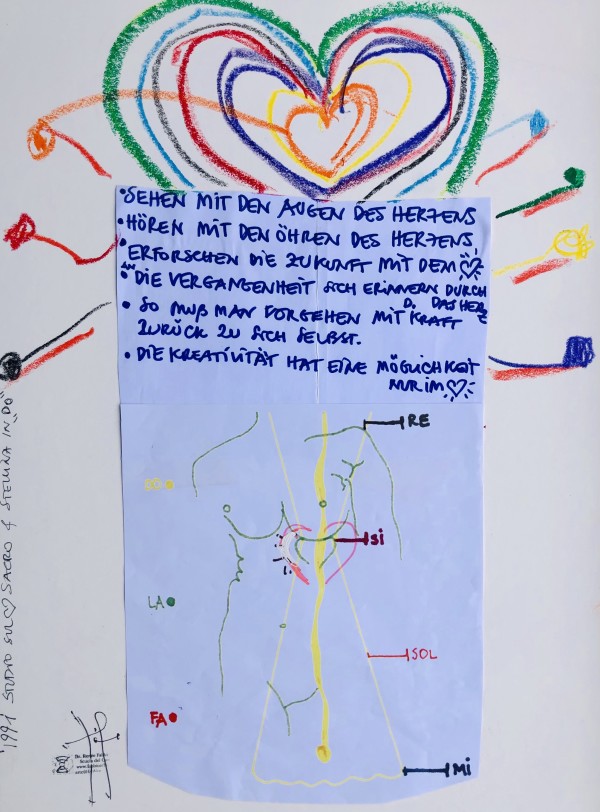 • SEHEN MIT DEN AUGEN DES HERZENS
• HÖREN MIT DEN ÖHREN DES HERZENS
• ERFORSCHEN DIE ZUKUNFT MIT DEM ♡
• DIE VERGANGENHEIT SICH ERINNERN DURCH
D. DAS HERZ
• SO MUß MAN VORGEHEN MIT KRAFT
ZURÜCK ZU SICH SELBST.
• DIE KREATIVITÄT HAT EINE MÖGLICHKEIT
NUR IM ♡
RE
SI
LA
SOL
FA
MI
1991 STUDIO SUL ♡ SACRO & STELLINA IN "DO"